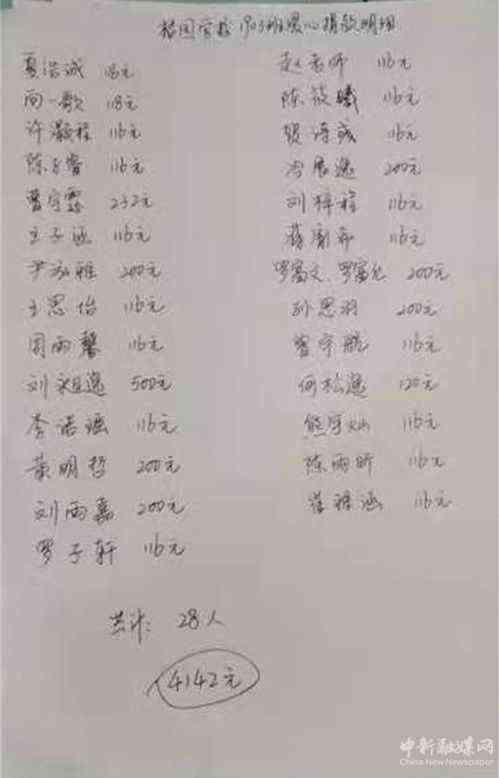 桔园学校1903班爱心捐款明细
夏浩诚 118元
向一歌 118元
许灏程 116元
陈子睿 116元
曹宇霏 232元
王子涵 116元
尹泓雅 200元
王思怡 116元
周雨馨 116元
刘昶逸 500元
李诺涵 116元
黄明哲 200元
刘雨嘉 200元
罗子轩 116元
赵老师 116元
陈筱曦 116元
贺诗彧 116元
200元
刘梓程 116元
116元
罗富文、罗富 200元
孙思羽 200元
曾宇航 116元
何松逸 120元
熊宇灿 116元
陈雨昕 116元
雅涵 116元
共计: 28人
4142元
中新融媒网
China New Newspaper